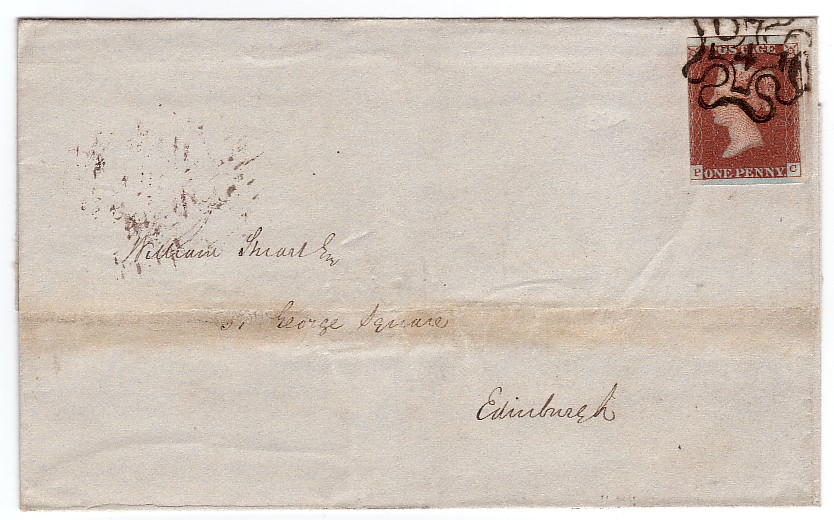 POSTAGE
4
P ONE PENNY C
William Stuart Esq
51 George Square
Edinburgh